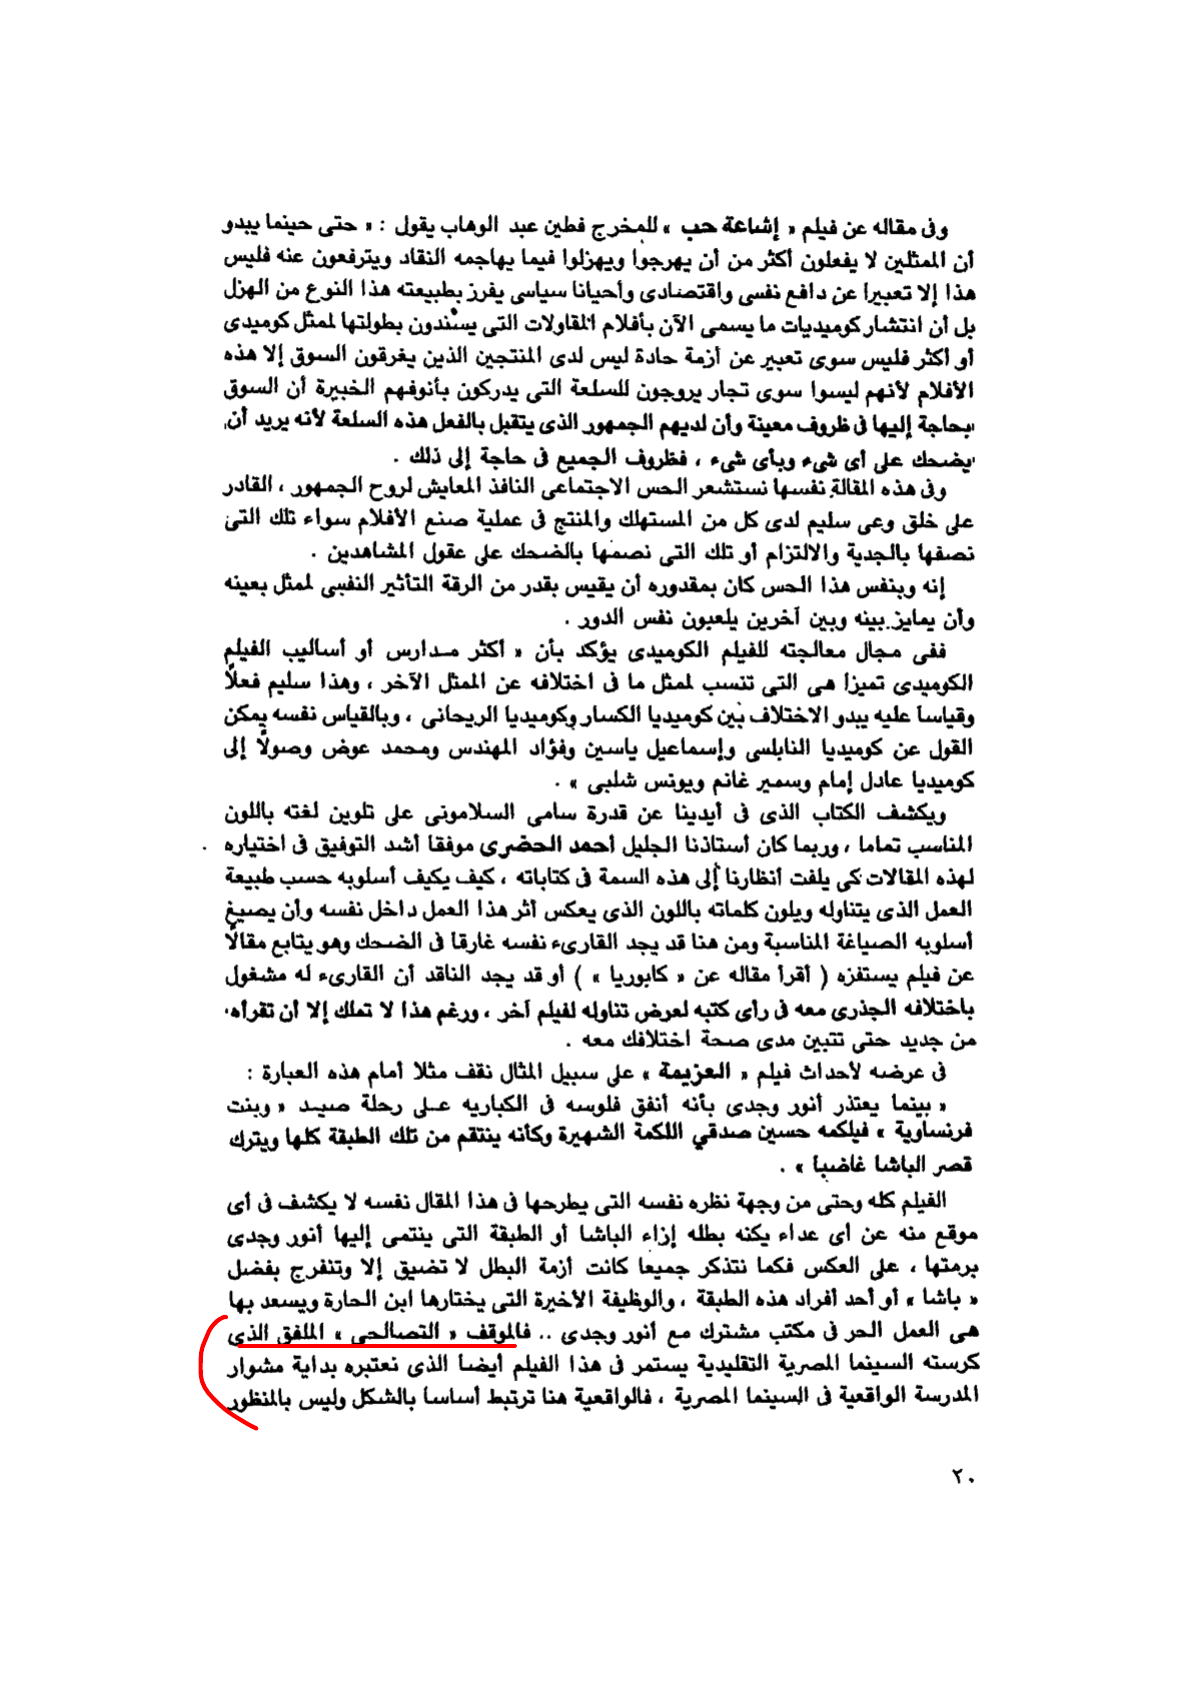 وفى مقاله عن فيلم « إشاعة حب » للمخرج فطين عبد الوهاب يقول : « حتى حينما يبدو
أن الممثلين لا يفعلون أكثر من أن يهرجوا ويهزلوا فيما يهاجمه النقاد ويترفعون عنه فليس
هذا إلا تعبيرا عن دافع نفسى واقتصادى وأحيانا سياسى يفرز بطبيعته هذا النوع من الهزل
بل أن انتشار كوميديات ما يسمى الآن بأفلام المقاولات التى يسندون بطولتها لممثل كوميدى
أو أكثر فليس سوى تعبير عن أزمة حادة ليس لدى المنتجين الذين يغرقون السوق إلا هذه
الأفلام لأنهم ليسوا سوى تجار يروجون للسلعة التى يدركون بأنوفهم الخبيرة أن السوق
بحاجة إليها فى ظروف معينة وأن لديهم الجمهور الذى يتقبل بالفعل هذه السلعة لأنه يريد أن
يضحك على أى شىء وبأى شىء ، فظروف الجميع فى حاجة إلى ذلك .
وفى هذه المقالة نفسها نستشعر الحس الاجتماعى النافذ المعايش لروح الجمهور ، القادر
على خلق وعى سليم لدى كل من المستهلك والمنتج فى عملية صنع الأفلام سواء تلك التى
نصفها بالجدية والالتزام أو تلك التى نصمها بالضحك على عقول المشاهدين .
إنه وبنفس هذا الحس كان بمقدوره أن يقيس بقدر من الرقة التأثير النفسى لممثل بعينه
وأن يمايز بينه وبين آخرين يلعبون نفس الدور .
ففى مجال معالجته للفيلم الكوميدى يؤكد بأن « أكثر مدارس أو أساليب الفيلم
الكوميدى تميزا هى التى تنتسب لممثل ما فى اختلافه عن الممثل الآخر ، وهذا سليم فعلاً
وقياسا عليه يبدو الاختلاف بين كوميديا الكسار وكوميديا الريحانى ، وبالقياس نفسه يمكن
القول عن كوميديا النابلسى وإسماعيل ياسين وفؤاد المهندس ومحمد عوض وصولًا إلى
كوميديا عادل إمام وسمير غانم ويونس شلبى » .
ويكشف الكتاب الذى فى أيدينا عن قدرة سامى السلامونى على تلوين لغته باللون
المناسب تماما ، وربما كان أستاذنا الجليل أحمد الحضرى موفقا أشد التوفيق فى اختياره
لهذه المقالات كى يلفت أنظارنا إلى هذه السمة فى كتاباته ، كيف يكيف أسلوبه حسب طبيعة
العمل الذى يتناوله ويلون كلماته باللون الذى يعكس أثر هذا العمل داخل نفسه وأن يصيغ
أسلوبه الصياغة المناسبة ومن هنا قد يجد القارىء نفسه غارقا فى الضحك وهو يتابع مقالًا
عن فيلم يستفزه ( أقرأ مقاله عن « كابوريا » ) أو قد يجد الناقد أن القارىء له مشغول
باختلافه الجذرى معه فى رأى كتبه لعرض تناوله لفيلم آخر ، ورغم هذا لا تملك إلا أن تقرأه
من جديد حتى تتبين مدى صحة اختلافك معه .
فى عرضه لأحداث فيلم « العزيمة » على سبيل المثال نقف مثلا أمام هذه العبارة :
« بينما يعتذر أنور وجدى بأنه أنفق فلوسه فى الكباريه على رحلة صيد « وبنت
فرنساوية » فيلكمه حسين صدقي اللكمة الشهيرة وكأنه ينتقم من تلك الطبقة كلها ويترك
قصر الباشا غاضبا » .
الفيلم كله وحتى من وجهة نظره نفسه التى يطرحها فى هذا المقال نفسه لا يكشف فى أى
موقع منه عن أى عداء يكنه بطله إزاء الباشا أو الطبقة التى ينتمى إليها أنور وجدى
برمتها ، على العكس فكما نتذكر جميعا كانت أزمة البطل لا تضيق إلا وتنفرج بفضل
« باشا » أو أحد أفراد هذه الطبقة ، والوظيفة الأخيرة التى يختارها ابن الحارة ويسعد بها
هى العمل الحر فى مكتب مشترك مع أنور وجدى .. فالموقف « التصالحى » الملفق الذى
كرسته السينما المصرية التقليدية يستمر فى هذا الفيلم أيضا الذى نعتبره بداية مشوار
المدرسة الواقعية فى السينما المصرية ، فالواقعية هنا ترتبط أساسا بالشكل وليس بالمنظور
٢٠